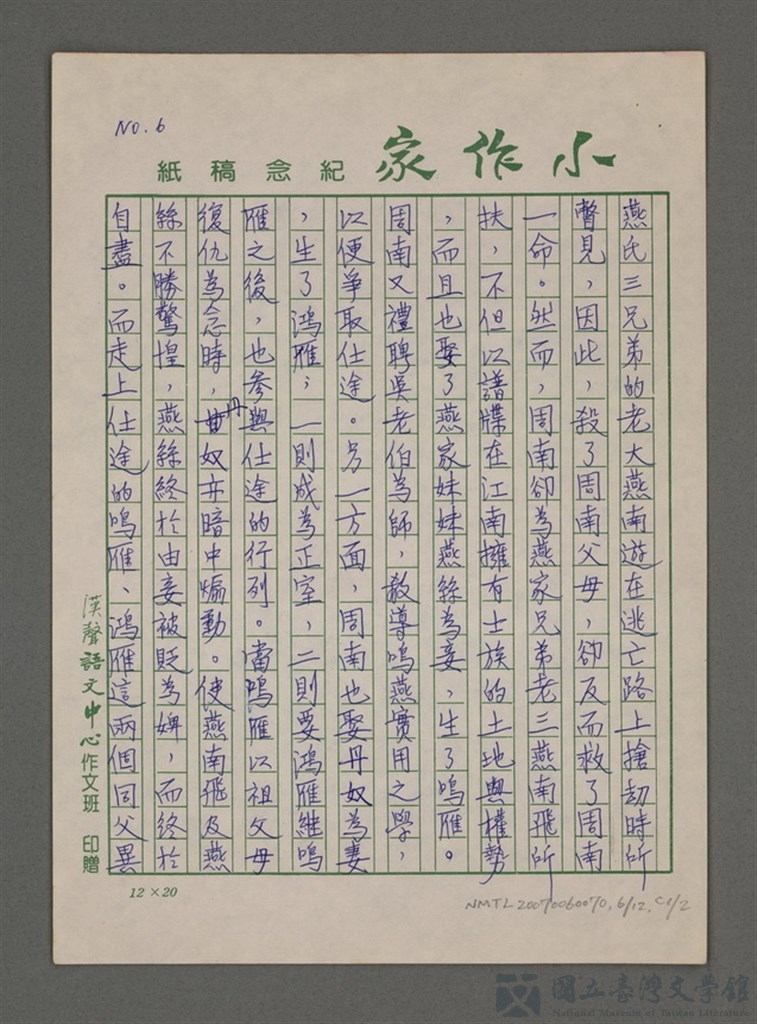 NO. 6
小作家
紀念稿紙
燕氏三兄弟的老大燕南遊在逃亡路上搶劫時所
瞥見，因此，殺了周南父母，卻反而救了周南
一命。然而，周南卻為燕家兄弟老三燕南飛所
扶，不但以譜牒在江南擁有士族的土地與權勢
，而且也娶了燕家妹妹燕絲為妾，生了鳴雁。
周南又禮聘吳老伯為師，教導鳴燕實用之學，
以便爭取仕途。另一方面，周南也娶丹奴為妻
，生了鴻雁；一則成為正室，二則要鴻雁繼鳴
雁之後，也參與仕途的行列。當鳴雁以祖父母
復仇為念時，丹奴亦暗中煽動。使燕南飛及燕
絲不勝驚惶，燕絲終於由妾被貶為婢，而終於
自盡。而走上仕途的鳴雁、鴻雁這兩個同父異
漢聲語文中心作文班 印贈
12×20
NMTL20070060070, 6/12, C1/2
國立臺灣文學館
National Museum of Taiwan Literature